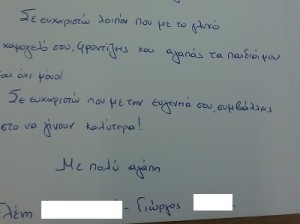 Σε ευχαριστώ λοιπόν που με το γλυκό
χαμογελό στου, φροντίζεις και αγαπάς τα παιδιά μου
και όχι μόνο!
Σε ευχαριστώ που με την ευγένειά σου, συμβάλλεις
στο να γίνουν καλύτερα!
Με πολύ αγάπη
Ελένη - Γιώργος